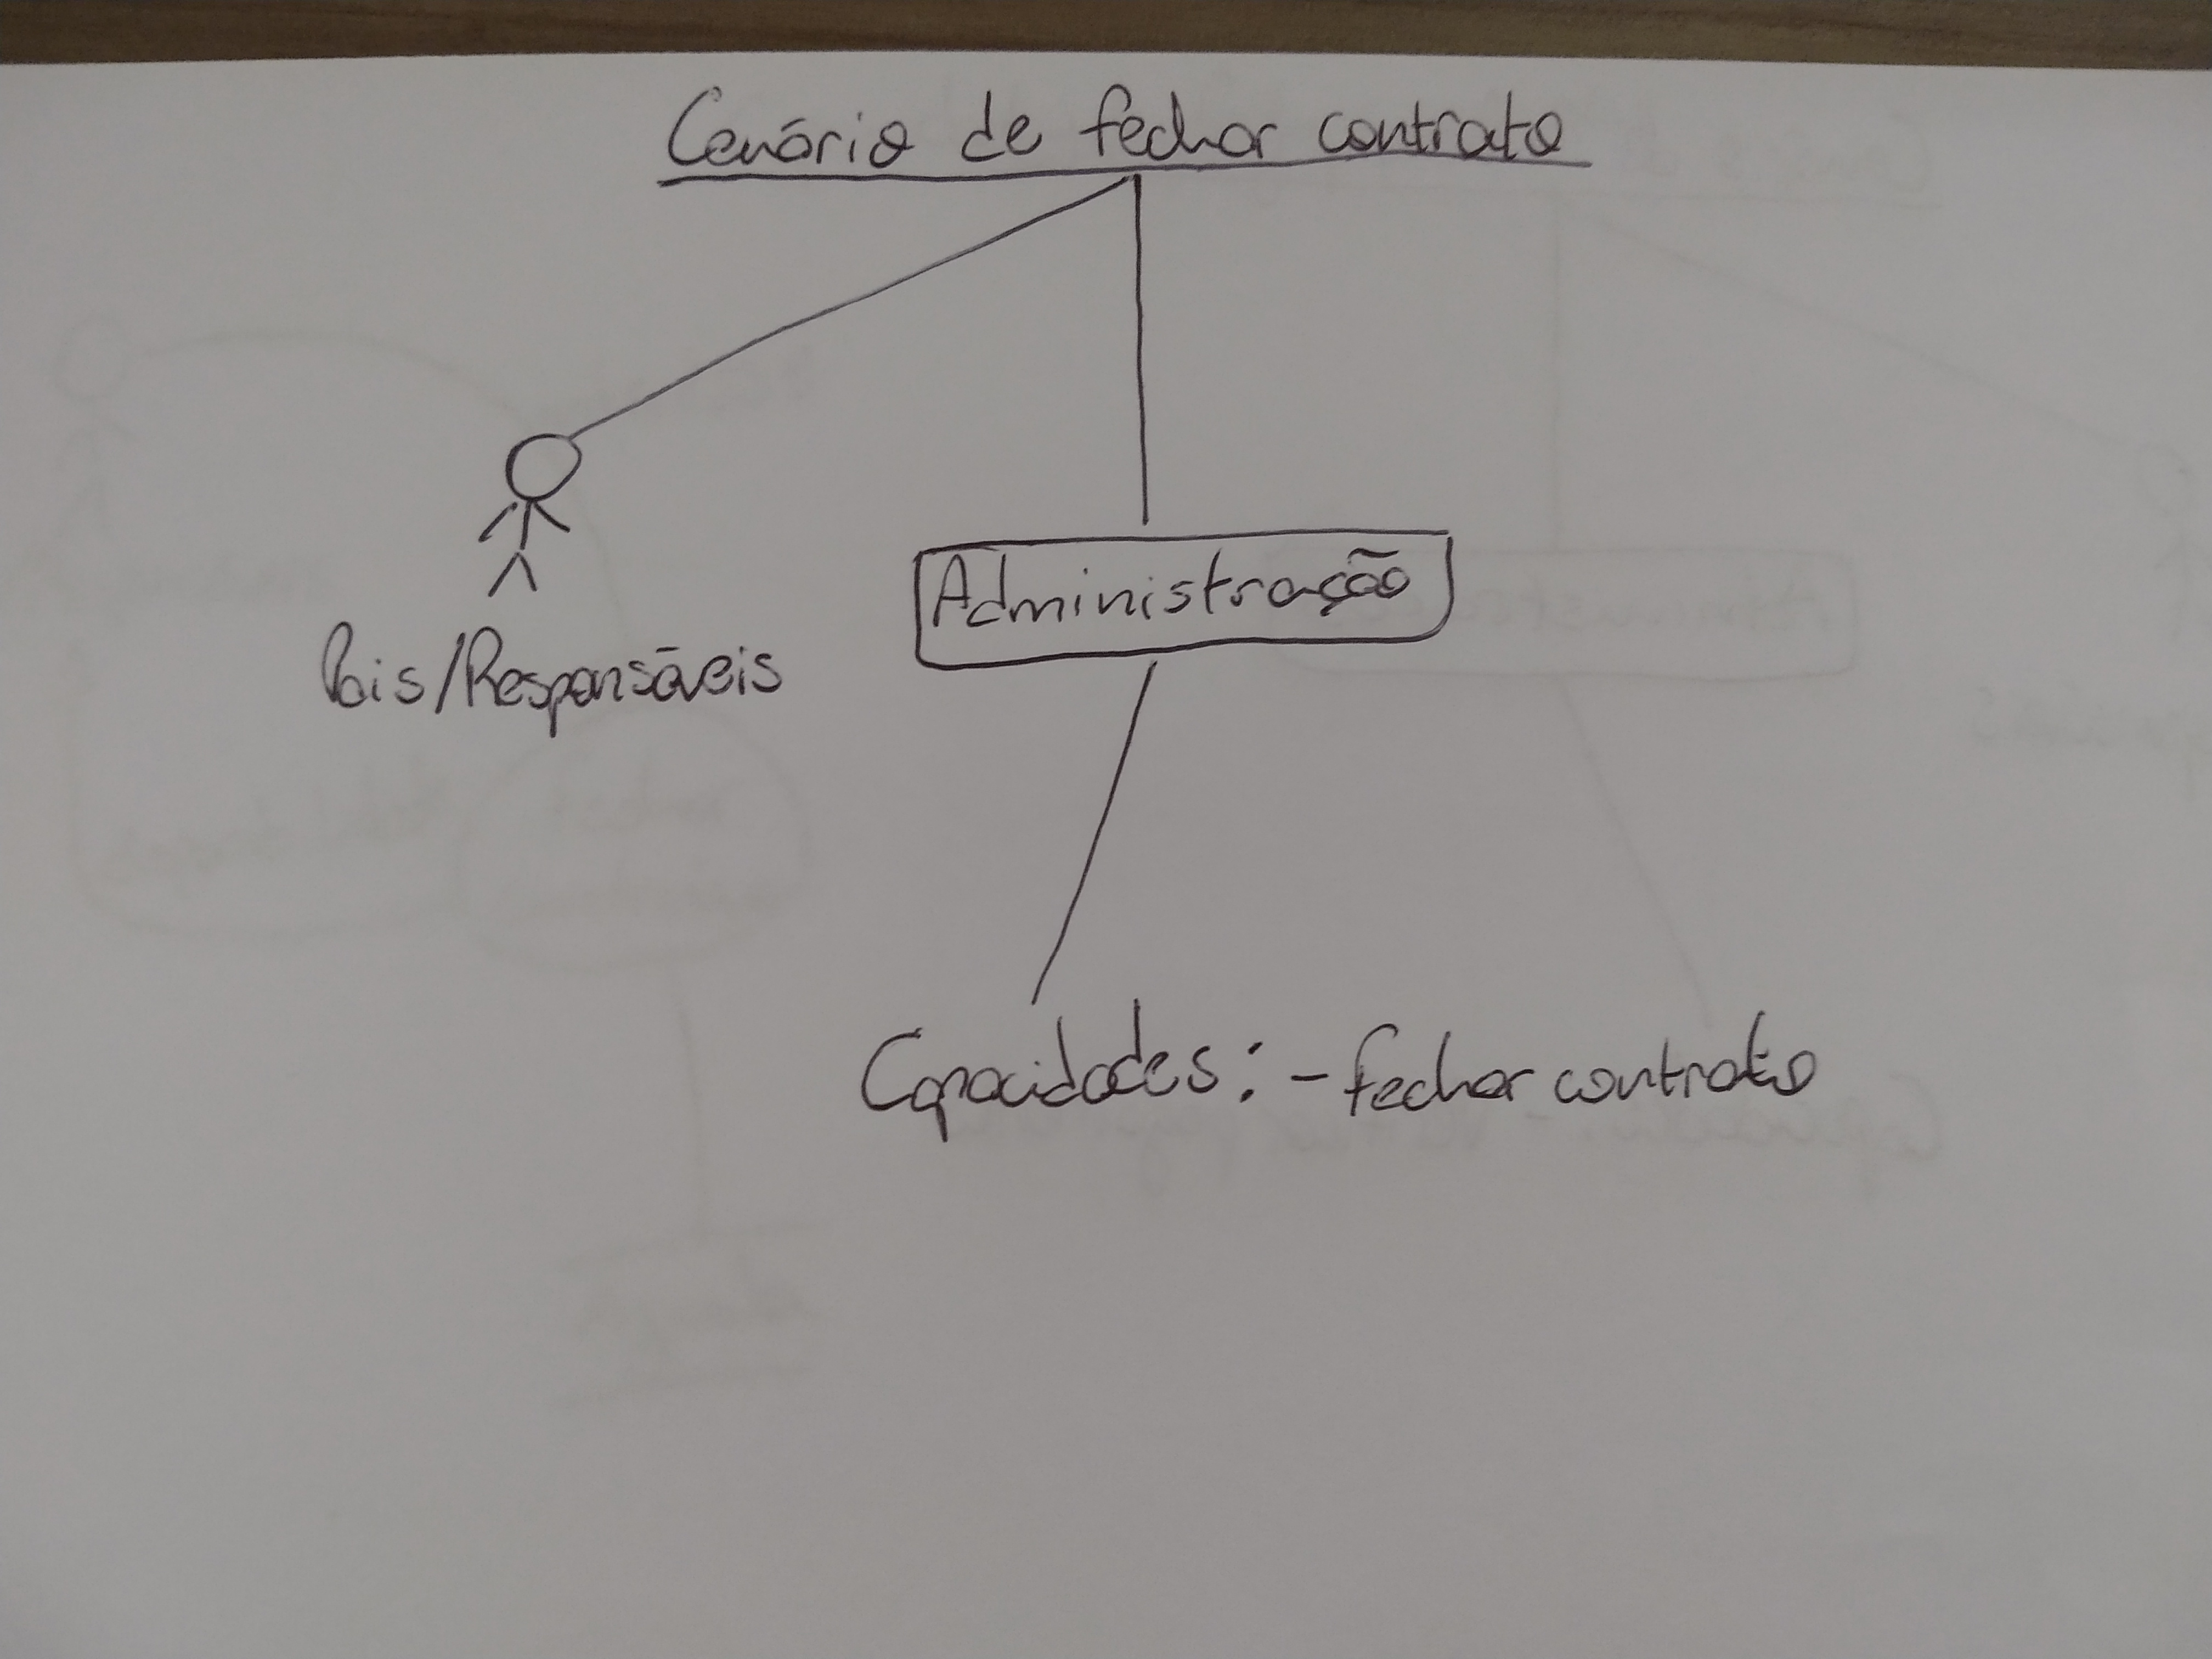 Cenário de fechar contrato
Pais/Responsáveis
Administração
Capacidades: - fechar contrato